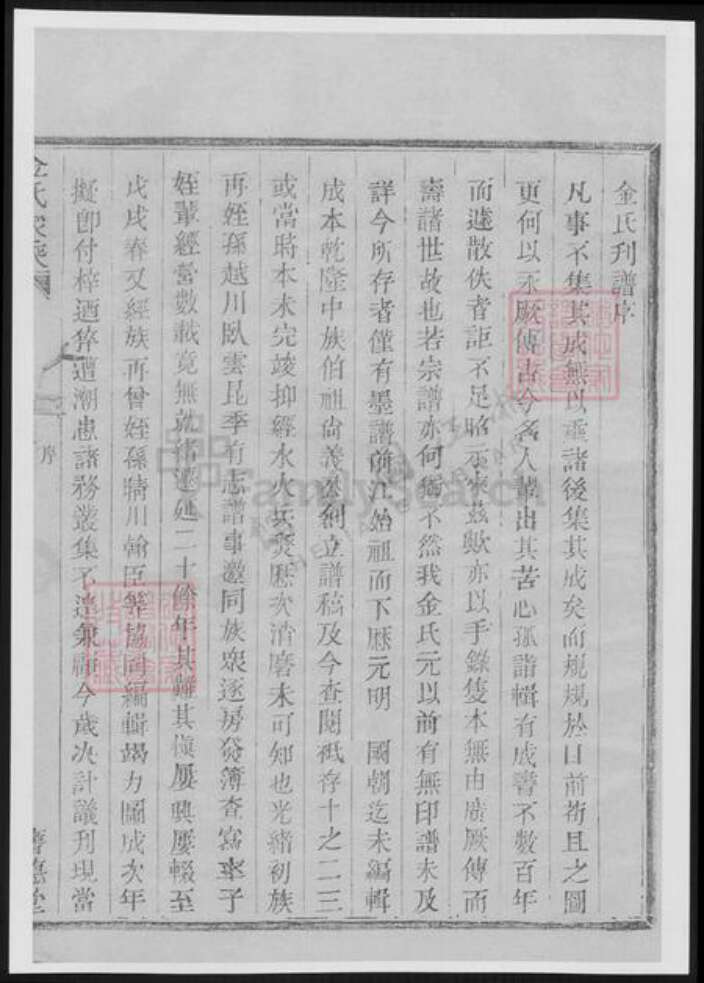 金氏刊譜序
凡事不集其成無以重諸後集其成矣而規規於目前茍且之圖
更何以永厥傳古今名人輩出其苦心孤詣輯有成書不數百年
而遽散佚者詎不足昭示來茲歟亦以手錄隻本無由廣厥傳而
壽諸世故也若宗譜亦何獨不然我金氏元以前有無印譜未及
詳今所存者僅有墨譜前江始祖而下歷元明 國朝迄未編輯
成本乾隆中族伯祖尚義公創立譜稿及今查閱祗存十之二三
或當時本未完竣抑經水火兵燹歷次消磨未可知也光緒初族
再姪孫越川臥雲昆季有志譜事邀同族眾逐房發簿查寫率子
姪輩經營數載竟無就緒遷延二十餘年其輟其愼屢興屢輟至
戊戌春又經族再曾姪孫晴川翰臣等協同編輯竭力圖成次年
擬卽付梓迺猝遭潮患諸務叢集不遑兼顧今歲決計議刊現當
金氏家乘 序
FamilySearch